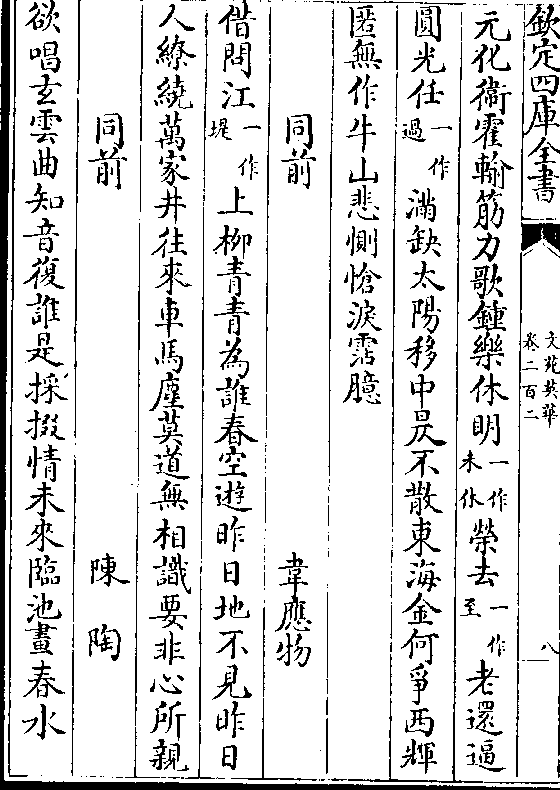 欽定四庫全書
文苑英華
卷二百二
八
元化衞霍輸筋力歌鍾樂休明一作未休榮去一作至老還逼
圓光任一作過滿缺太陽移中昃不散東海金何爭西輝
匿無作牛山悲惻愴淚霑臆
同前 韋應物
借問江一作堤上柳青青為誰春空遊昨日地不見昨日
人繚繞萬家井往來車馬塵莫道無相識要非心所親
同前 陳陶
欲唱玄雲曲知音復誰是採掇情未來臨池畫春水